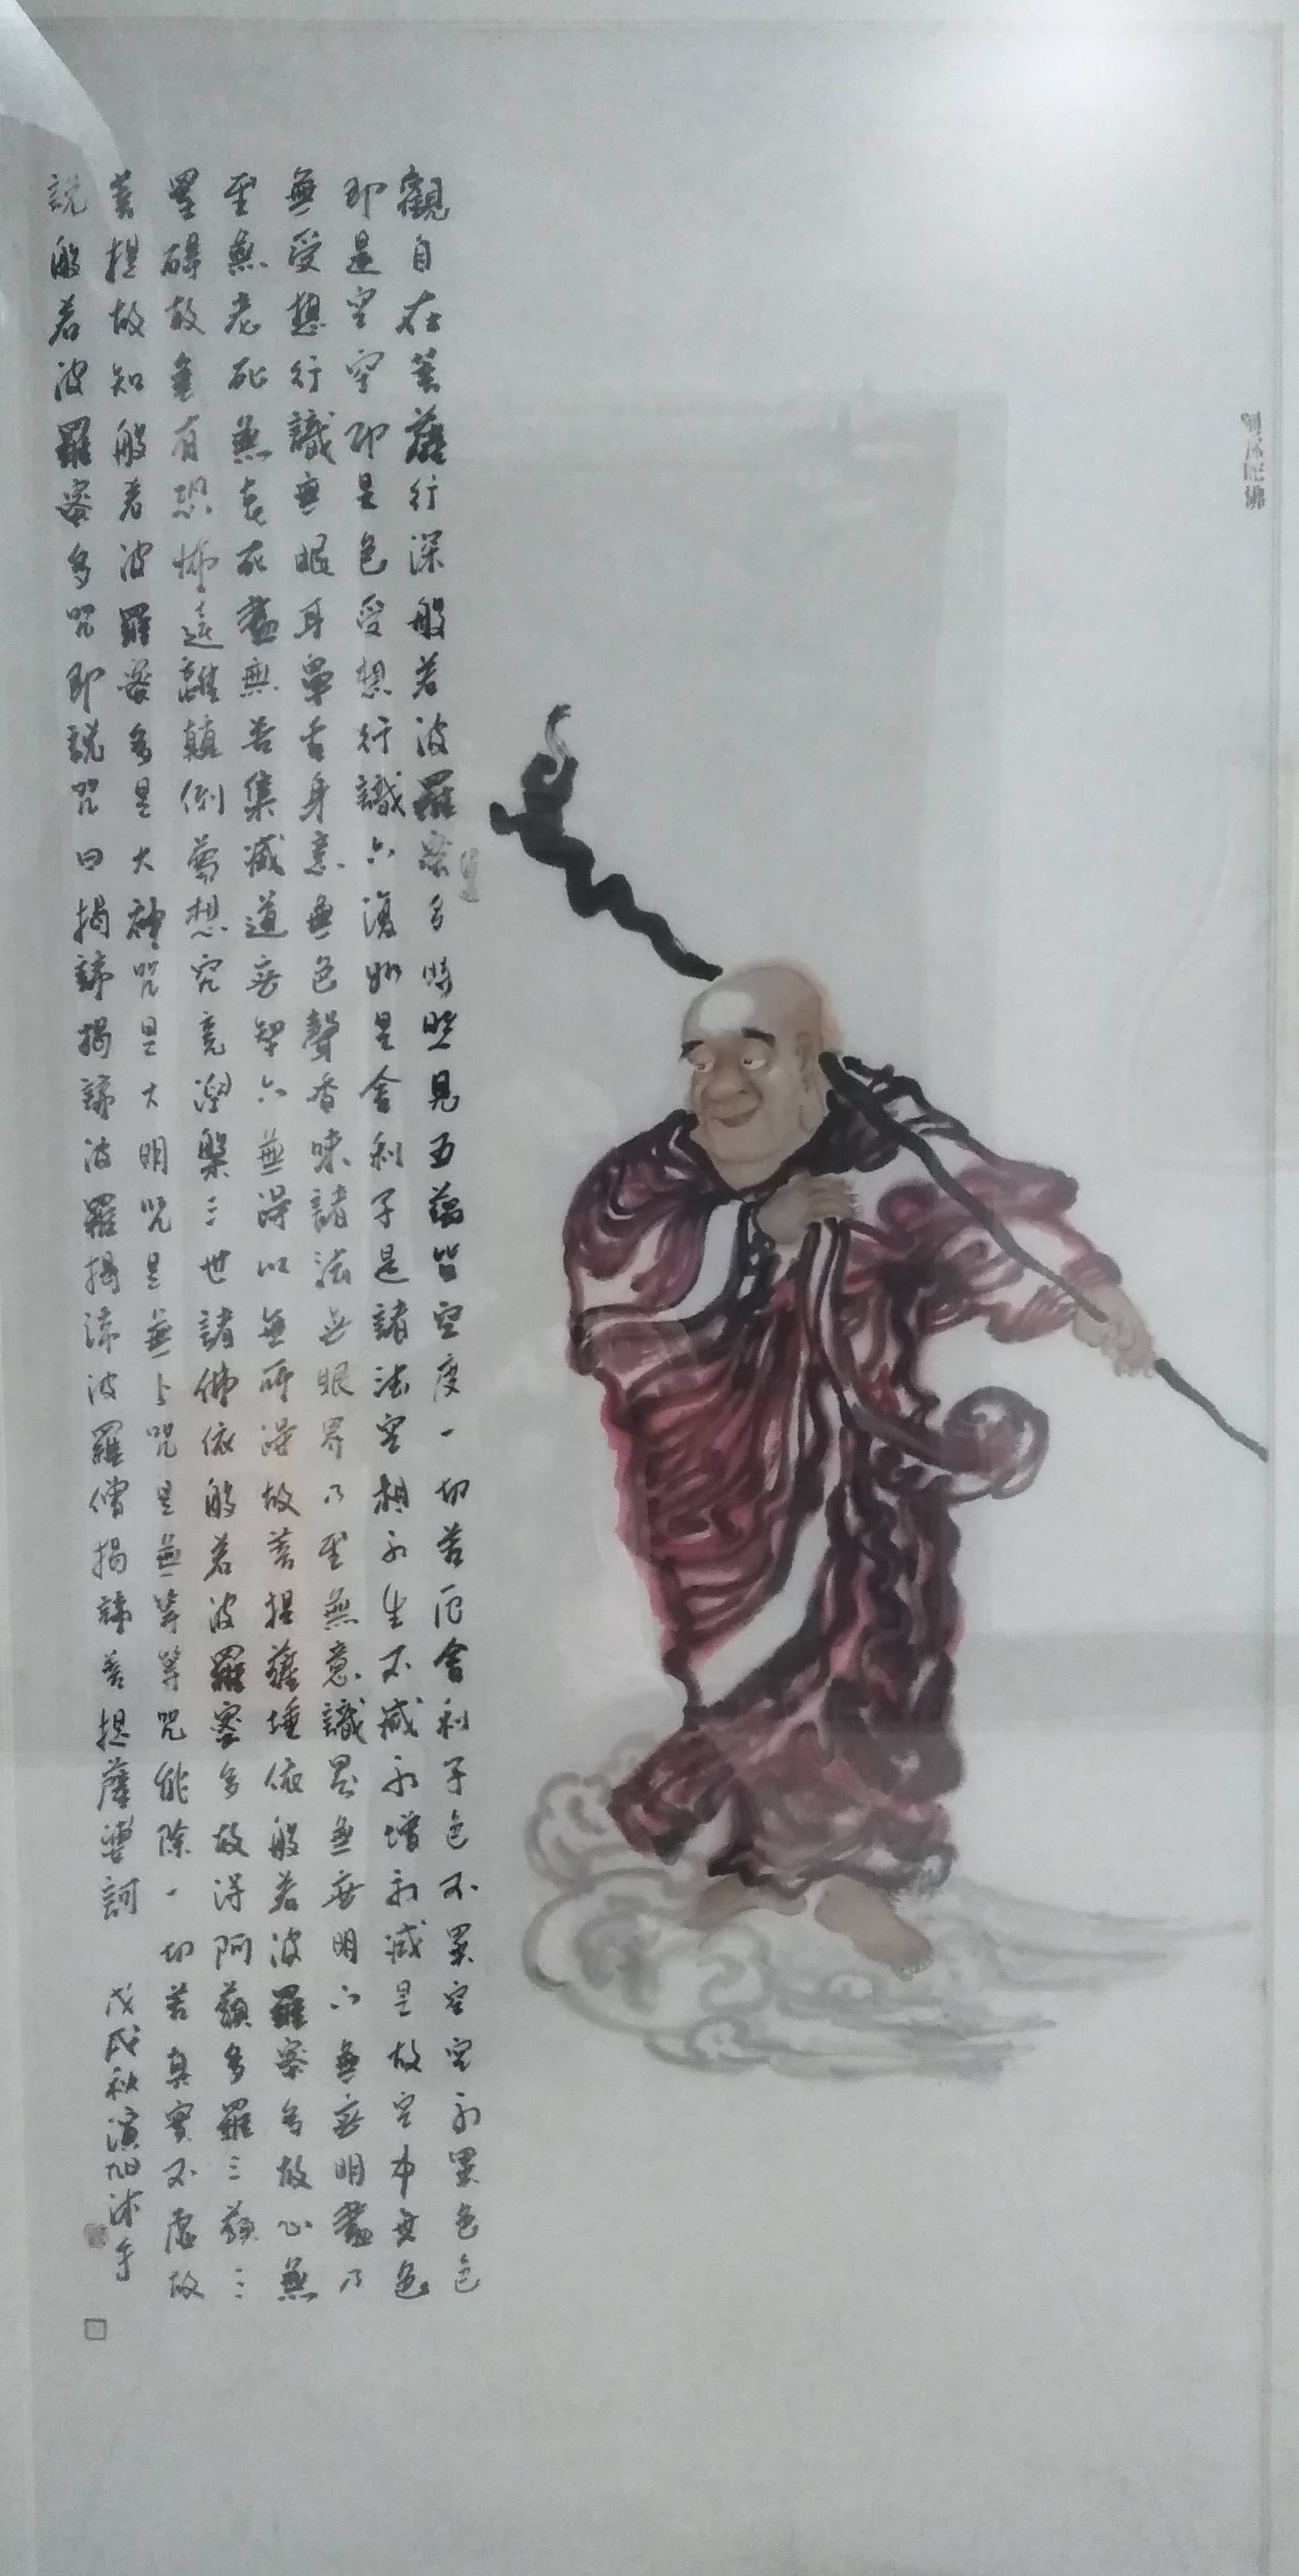 觀自在菩薩行深般若波羅蜜多時照見五蘊皆空度一切苦厄舍利子色不異空空不異色色
即是空空即是色受想行識亦復如是舍利子是諸法空相不生不滅不增不減是故空中無色
無受想行識無眼耳鼻舌身意無色聲香味諸法無眼界乃至無意識界無無明亦無無明盡乃
至無老死無老死盡無苦集滅道無智亦無得以無所得故菩提薩埵依般若波羅蜜多故心無
罣礙故無有恐怖遠離顛倒夢想究竟涅槃三世諸佛依般若波羅蜜多故得阿耨多羅三藐三
菩提故知般若波羅蜜多是大神咒是大明咒是無上咒是無等等咒能除一切苦真實不虛故
說般若波羅蜜多咒即說咒曰揭諦揭諦波羅揭諦波羅僧揭諦菩提薩婆訶 戊戌秋演旭沐手